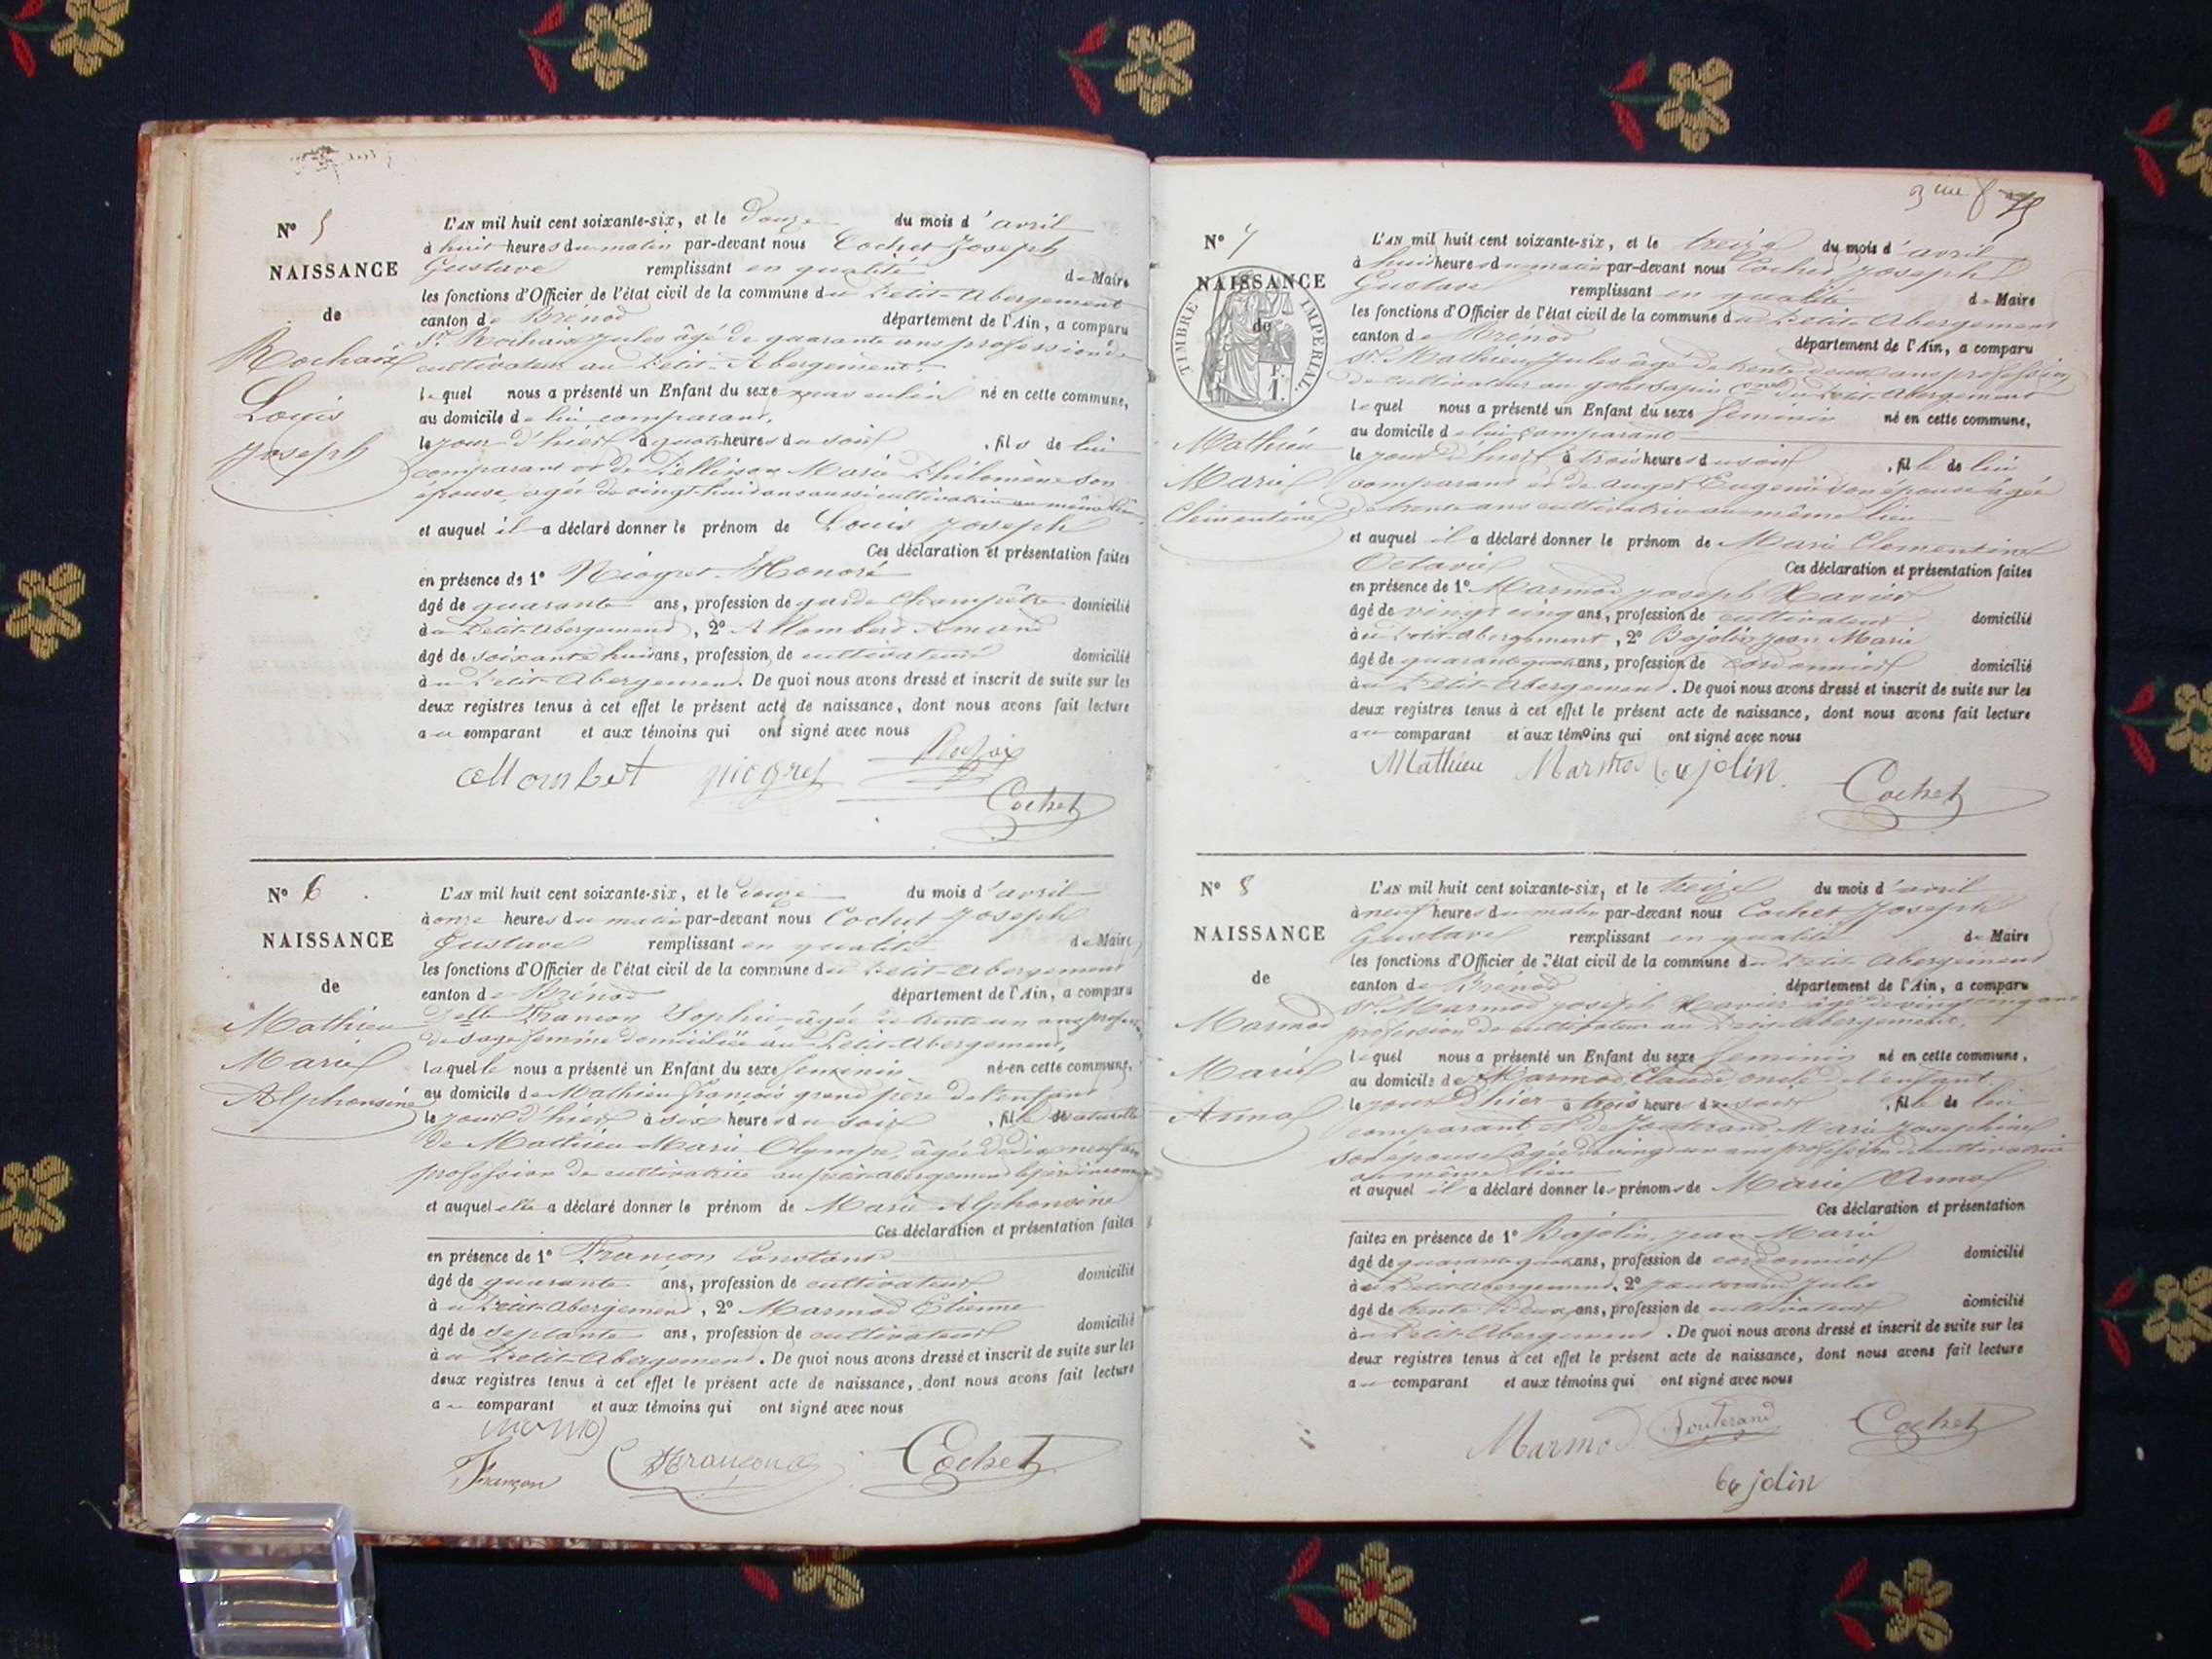 N° 5
NAISSANCE
de
Rochaix
Louis
Joseph
L'AN mil huit cent soixante-six, et le Douze du mois d'avril
à huit heures du matin par-devant nous Cochet Joseph
Gustave remplissant en qualité de Maire
les fonctions d'Officier de l'état civil de la commune du Petit-Abergement
canton de Brénod département de l'Ain, a comparu
Sr Rochaix Jules âgé de quarante ans profession de
cultivateur au Petit-Abergement,
lequel nous a présenté un Enfant du sexe masculin né en cette commune,
au domicile de lui comparant,
le jour d'hier à quatre heures du soir, fils de lui
comparant et de Marie Philomène son
épouse, agée de vingt-huit ans aussi cultivatrice au même lieu
et auquel il a déclaré donner le prénom de Louis Joseph
Ces déclaration et présentation faites
en présence de 1° Niogret Honoré
âgé de quarante ans, profession de garde Champêtre domicilié
au Petit-Abergement, 2° Allombert Amand
âgé de soixante huit ans, profession de cultivateur domicilié
au Petit-Abergement. De quoi nous avons dressé et inscrit de suite sur les
deux registres tenus à cet effet le présent acte de naissance, dont nous avons fait lecture
au comparant et aux témoins qui ont signé avec nous
allombert niogret
Cochet
N° 6
NAISSANCE
de
Mathieu
Marie
Alphonsine
L'AN mil huit cent soixante-six, et le douze du mois d'avril
à onze heures du matin par-devant nous Cochet Joseph
Gustave remplissant en qualité de Maire
les fonctions d'Officier de l'état civil de la commune du Petit-Abergement
canton de Brénod département de l'Ain, a comparu
Delle Françon Sophie âgée de trente un ans profession
de sage femme domiciliée au Petit-Abergement,
laquelle nous a présenté un Enfant du sexe feminin né en cette commune,
au domicile de Mathieu François grand père de l'enfant
le jour d'hier à six heures du soir, fille naturelle
de Mathieu Marie Olympe, âgée de dix neuf ans
profession de cultivatrice au petit-abergement le père inconnu
et auquel elle a déclaré donner le prénom de Marie Alphonsine
Ces déclaration et présentation faites
en présence de 1° Françon Constant
âgé de quarante ans, profession de cultivateur domicilié
au Petit-Abergement, 2° Marmod Etienne
âgé de septante ans, profession de cultivateur domicilié
au Petit-Abergement. De quoi nous avons dressé et inscrit de suite sur les
deux registres tenus à cet effet le présent acte de naissance, dont nous avons fait lecture
au comparant et aux témoins qui ont signé avec nous
Françon Cochet
N° 7
NAISSANCE
de
TIMBRE IMPERIAL
Mathieu
Marie
Clementine
L'AN mil huit cent soixante-six, et le treize du mois d'avril
à huit heures du matin par-devant nous Cochet Joseph
Gustave remplissant en qualité de Maire
les fonctions d'Officier de l'état civil de la commune du Petit-Abergement
canton de Brénod département de l'Ain, a comparu
Sr Mathieu Jules âgé de trente deux ans profession
de cultivateur au du Petit-Abergement
lequel nous a présenté un Enfant du sexe feminin né en cette commune,
au domicile de lui comparant
le jour d'hier à trois heures du soir, fille de lui
comparant et de Auger Eugenie son épouse âgée
de trente ans cultivatrice au même lieu
et auquel il a déclaré donner le prénom de Marie Clementine
Octavie Ces déclaration et présentation faites
en présence de 1° Marmod Joseph Xavier
âgé de vingt cinq ans, profession de cultivateur domicilié
au Petit-Abergement, 2° Bajolin Jean Marie
âgé de quarante quatre ans, profession de cordonnier domicilié
au Petit-Abergement. De quoi nous avons dressé et inscrit de suite sur les
deux registres tenus à cet effet le présent acte de naissance, dont nous avons fait lecture
au comparant et aux témoins qui ont signé avec nous
Mathieu Marmod bajolin
Cochet
N° 8
NAISSANCE
de
Marmod
Marie
Anna
L'AN mil huit cent soixante-six, et le treize du mois d'avril
à neuf heures du matin par-devant nous Cochet Joseph
Gustave remplissant en qualité de Maire
les fonctions d'Officier de l'état civil de la commune du Petit-Abergement
canton de Brénod département de l'Ain, a comparu
Sr Marmod Joseph Xavier âgé de vingt cinq ans
profession de cultivateur au Petit-Abergement,
lequel nous a présenté un Enfant du sexe feminin né en cette commune,
au domicile de Marmod Claude, oncle de l'enfant
le jour d'hier à trois heures du soir, fille de lui
comparant et de Jouterand Marie Josephine
son épouse agée de vingt un ans profession de cultivatrice
au même lieu
et auquel il a déclaré donner les prénoms de Marie Anna
Ces déclaration et présentation
faites en présence de 1° Bajolin Jean Marie
âgé de quarante quatre ans, profession de cordonnier domicilié
au Petit-Abergement, 2° Jouterand Jules
âgé de trente deux ans, profession de cultivateur domicilié
au Petit-Abergement. De quoi nous avons dressé et inscrit de suite sur les
deux registres tenus à cet effet le présent acte de naissance, dont nous avons fait lecture
au comparant et aux témoins qui ont signé avec nous
Marmod Jouterand Cochet
bajolin